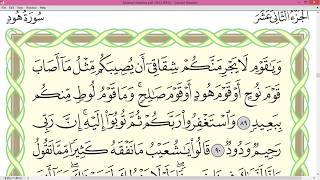 سُورَةُ هُود
الجُزْءُ الثَّانِي عَشَرَ
وَيَٰقَوْمِ لَا يَجْرِمَنَّكُمْ شِقَاقِىٓ أَن يُصِيبَكُم مِّثْلُ مَآ أَصَابَ
قَوْمَ نُوحٍ أَوْ قَوْمَ هُودٍ أَوْ قَوْمَ صَٰلِحٍ وَمَا قَوْمُ لُوطٍ مِّنكُم
بِبَعِيدٍ ٨٩ وَٱسْتَغْفِرُوا۟ رَبَّكُمْ ثُمَّ تُوبُوٓا۟ إِلَيْهِ إِنَّ رَبِّى
رَحِيمٌ وَدُودٌ ٩٠ قَالُوا۟ يَٰشُعَيْبُ مَا نَفْقَهُ كَثِيرًا مِّمَّا تَقُولُ